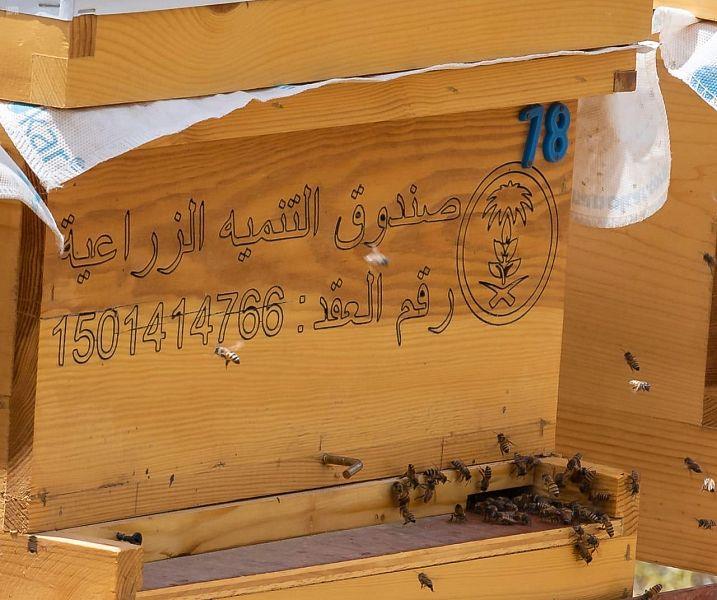 78
صندوق التنميه الزراعية
رقم العقد : 1501414766
kar